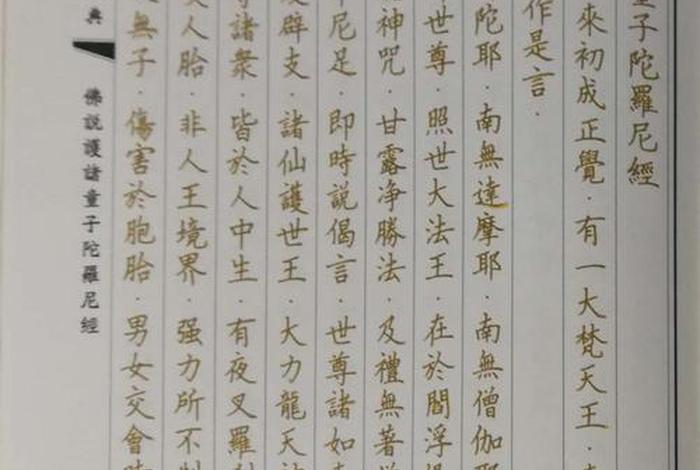 童子陀羅尼經
來初成正覺．有一大梵天王．
作是言．
陀耶．南無達摩耶．南無僧伽耶
世尊．照世大法王．在於閻浮提
神咒．甘露净勝法．及禮無著
尼足．即時説偈言．世尊諸如
辟支．諸仙護世王．大力龍天
諸衆．皆於人中生．有夜叉羅刹
人胎．非人王境界．强力所不制
無子．傷害於胞胎．男女交會時
典
佛説護諸童子陀羅尼經